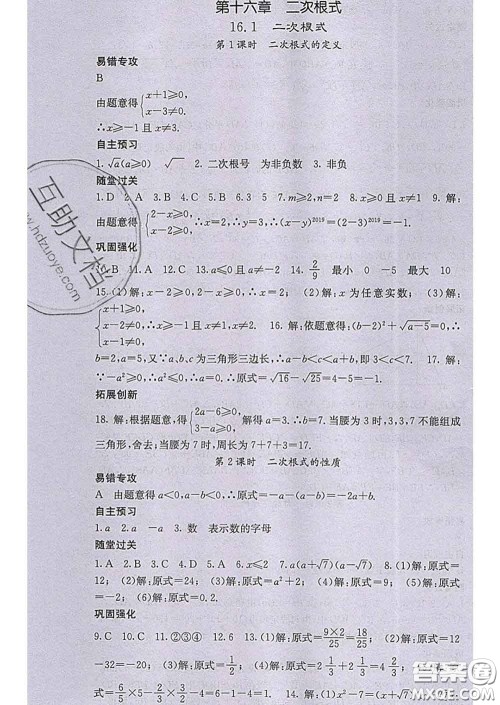 第十六章 二次根式
16.1 二次根式
第1课时 二次根式的定义
易错专攻
B
由题意得{x+1≥0, x-3≠0.
∴x≥-1且x≠3.
自主预习
1.√a(a≥0) √ 2.二次根号 为非负数 3.非负
随堂过关
1.D 2.A 3.B 4.C 5.D 7.m≥2 8.x≥0且x≠1 9.解:
由题意得{2-x≥0, x-2≥0, ∴x=2,∴y=3,∴(x-y)²⁰¹⁹=(2-3)²⁰¹⁹=-1.
巩固强化
10.B 11.A 12.C 13.a≤0且a≠-2 14.2/9 最小 0 -5 最大 10
15.(1)解:x-2≥0,2-x≥0,∴x=2; (2)解:x为任意实数; (3)解:
{x+1≥0, x-1≠0, ∴x≥-1且x≠1. 16.解:依题意得:(b-2)²+√(a-5)=0,∴
b=2,a=5,又∵a、b、c为三角形三边长,∴a-b<c<a+b,即3<c<7. 17.解:
∵-a²≥0,∴a²≤0,∴a=0,∴原式=√16-√25=4-5=-1.
拓展创新
18.解:根据题意,得{2a-6≥0, 3-a≥0, 解得a=3.∴b=7.当腰为3时,3,3,7不能组成
三角形,舍去;当腰为7时,周长为7+7+3=17.
第2课时 二次根式的性质
易错专攻
A 由题意得a<0,a-b<0,∴原式=-a-b+a=-b.
自主预习
1.a 2.a -a 3.数 表示数的字母
随堂过关
1.A 2.D 3.A 4.A 5.1 6.x≤2 7.(a+√7)(a-√7) 8.(1)解:原式=
12; (2)解:原式=24; (3)解:原式=a²+2; (4)解:原式=9; (5)解:原式=
12; (6)解:原式=0.2.
巩固强化
9.C 10.C 11.②③④ 12.6 13.(1)解:原式=(9×2)/25=18/25; (2)解:原式=12
-32=-20; (3)解:原式=1/2; (4)解:原式=2 1/3+2 1/3=4 2/3; (5)解:原
式=6/5×5-2/3×6-1=6-4-1=1. 14.解:(1)x²-7=(x+√7)
互助文档
www.hdzuoye.com
答案圈
MXQE.COM